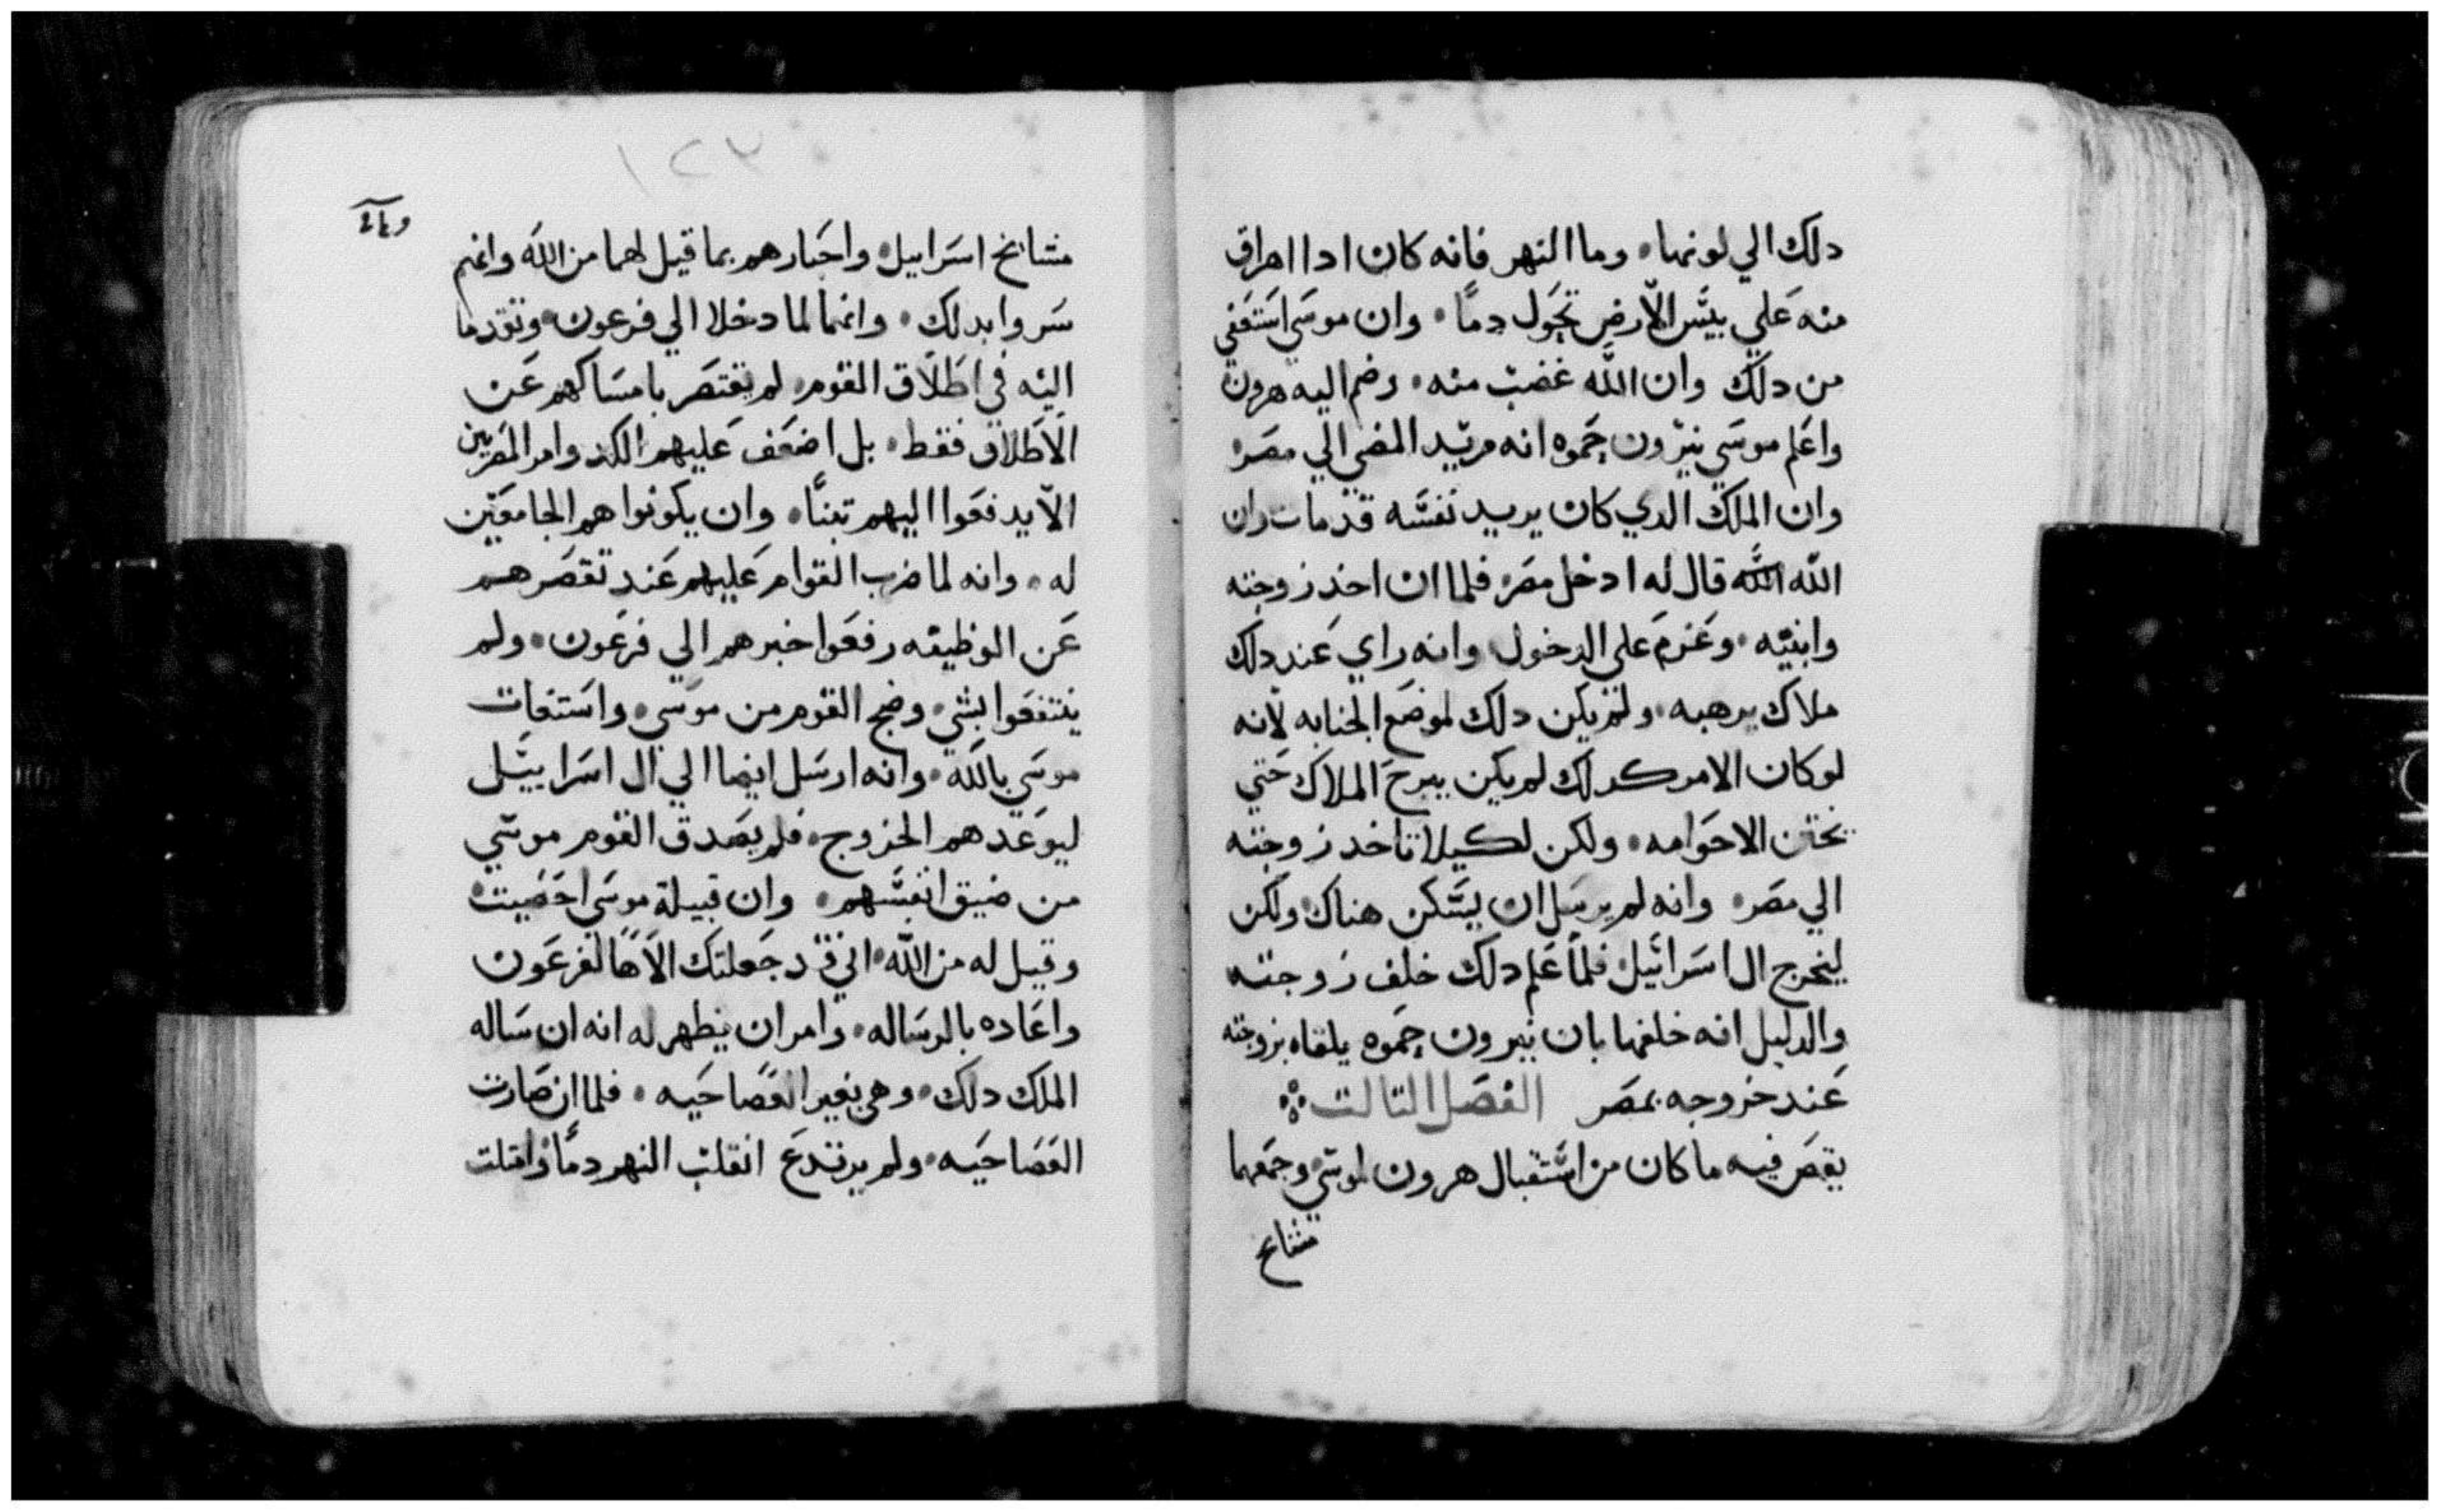 دلك الي لونها ۰ وما النهر فانه كان ادا اهراق
منه علي يبس الأرض تحول دمًا ۰ وان موسي استعفي
من دلك وان اللّه غضب منه ۰ وضم اليه هرون
واعلم موسي يثرون حموه انه مريد المضي الي مصر
وان الملك الدي كان يريد نفسه قد مات وان
اللّه اللّه قال له ادخل مصر فلما ان اخد زوجته
وابنيه ۰ وعزم علي الدخول وانه راي عند دلك
ملاك يرهبه ۰ ولم يكن دلك لموضع الجنابه لأنه
لوكان الامر كدلك لم يكن يبرح الملاك حتي
تختن الاحوامه ۰ ولكن لكيلا تاخد زوجته
الي مصر ۰ وانه لم يرسل ان يسكن هناك ولكن
ليخرج ال اسرائيل فلما علم دلك خلف زوجته
والدليل انه خلفها بان يثرون حموه يلقاه بزوجته
عند خروجه بمصر الفصل التالت
يقص فيه ما كان من استقبال هرون لموسي وجمعهما
مشايخ
١٢٣
مشايخ اسراييل ۰ واخبارهم بما قيل لهما من اللّه وانهم
سروا بدلك ۰ وانهما لما دخلا الي فرعون ۰ وتقدما
اليه في اطلاق القوم ۰ لم يقتصر بامساكهم عن
الأطلاق فقط ۰ بل اضعف عليهم الكد وامر المصريين
الّا يدفعوا اليهم تبنًا ۰ وان يكونوا هم الجامعين
له ۰ وانه لما ضرب القوام عليهم عند تقصرهم
عن الوظيفه رفعوا خبرهم الي فرعون ۰ ولم
ينتفعوا بشي ۰ وضج القوم من موسي ۰ واستغات
موسي باللّه ۰ وانه ارسل ايضا الي ال اسراييل
ليوعدهم الخروج ۰ فلم يصدق القوم موسي
من ضيق انفسهم ۰ وان قبيلة موسي احصيت
وقيل له من اللّه ۰ اني قد جعلتك الأهًا لفرعون
واعاده بالرساله ۰ وامر ان يظهر له انه ان ساله
الملك دلك ۰ وهي بغير العصا حيه ۰ فلما ان صارت
العصا حيه ۰ ولم يرتدع انقلب النهر دمًا واقتلت